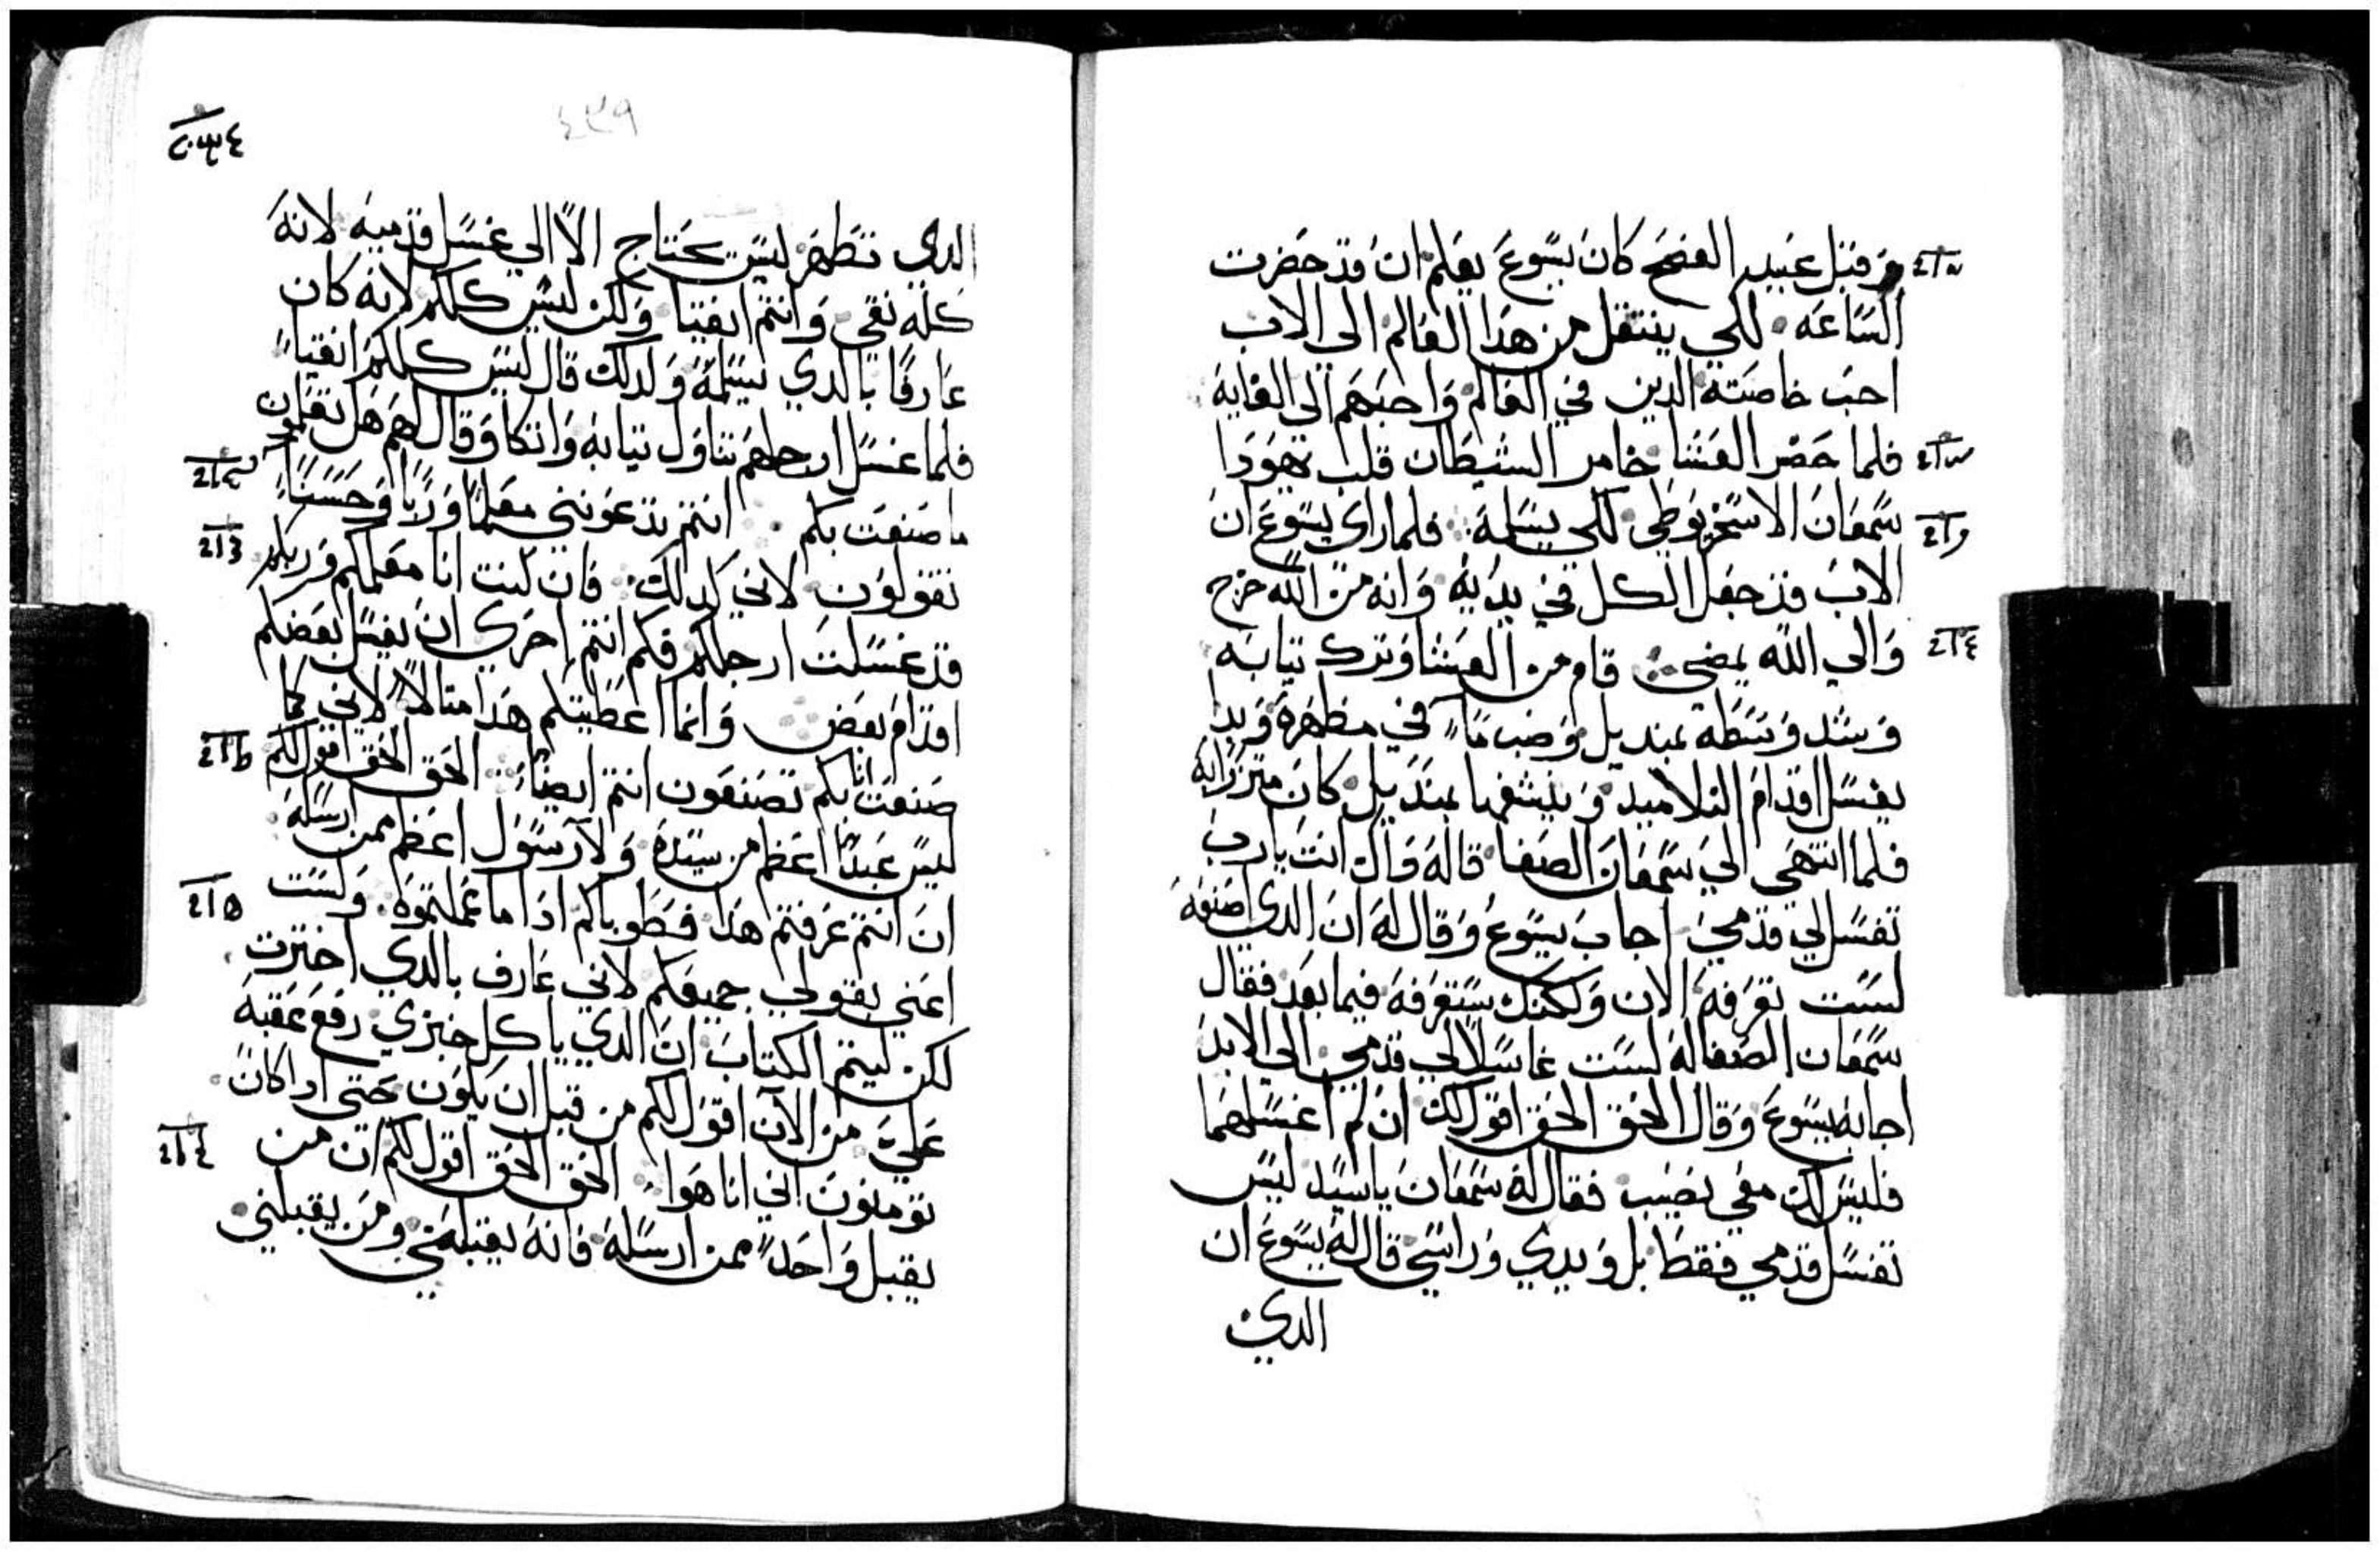 وقبل عيد الفصح كان يسوع يعلم ان قد حضرت
الساعه لكي ينتقل من هدا العالم الى الاب
احب خاصته الدين في العالم واحبهم الى الغايه
فلما حضر العشا خامر الشيطان قلب يهودا
سمعان الاسخريوطي لكي يسلمه فلما راى يسوع ان
الاب قد جعل الكل في يديه وانه من الله خرج
والي الله يمضي قام من العشا وترك تيابه
وشد وسطه بمنديل وصب ما في مطهره وبدا
يغسل اقدام التلاميد وينشفها بمنديل كان متزرا به
فلما انتهى الي سمعان الصفا قال له داك انت يارب
تغسل لي قدمي اجاب يسوع وقال له ان الدي اصنعه
لست تعرفه الان ولكنك ستعرفه فيما بعد فقال
سمعان الصفا له لست غاسلا لي قدمي الى الابد
اجابه يسوع وقال الحق الحق اقول لك ان لم اغسلهما
فليس لك معي نصيب فقال له سمعان ياسيد ليس
تغسل قدمي فقط بل ويدي وراسي قال له يسوع ان
الدي
٤٣٩
الدي تطهر ليس يحتاج الا الي غسل قدميه لانه
كله نقي وانتم انقيا ولكن ليس كلكم لانه كان
عارفا بالدي يسلمه ولدلك قال ليس كلكم انقيا
فلما غسل ارجلهم تناول تيابه واتكا وقال لهم هل تعلمون
ما صنعت بكم انتم تدعونني معلما وربا وحسنا
تقولون لاني كدلك فان كنت انا معلمكم وربكم
قد غسلت ارجلكم فكم انتم احرى ان يغسل بعضكم
اقدام بعض وانما اعطيتكم هدا متالا لاني كما
صنعت انا بكم تصنعون انتم ايضا الحق الحق اقول لكم
ليس عبدا اعظم من سيده ولا رسول اعظم ممن ارسله
ان انتم عرفتم هدا فطوباكم ادا ما عملتموه ولست
اعني بقولي جميعكم لاني عارف بالدي اخترت
لكن ليتم الكتاب ان الدي ياكل خبزي رفع عقبه
علي من الآن اقول لكم من قبل ان يكون حتى ادا كان
تومنون اني انا هوا الحق الحق اقول لكم ان من
يقبل واحدا ممن ارسله فانه يقبلني ومن يقبلني